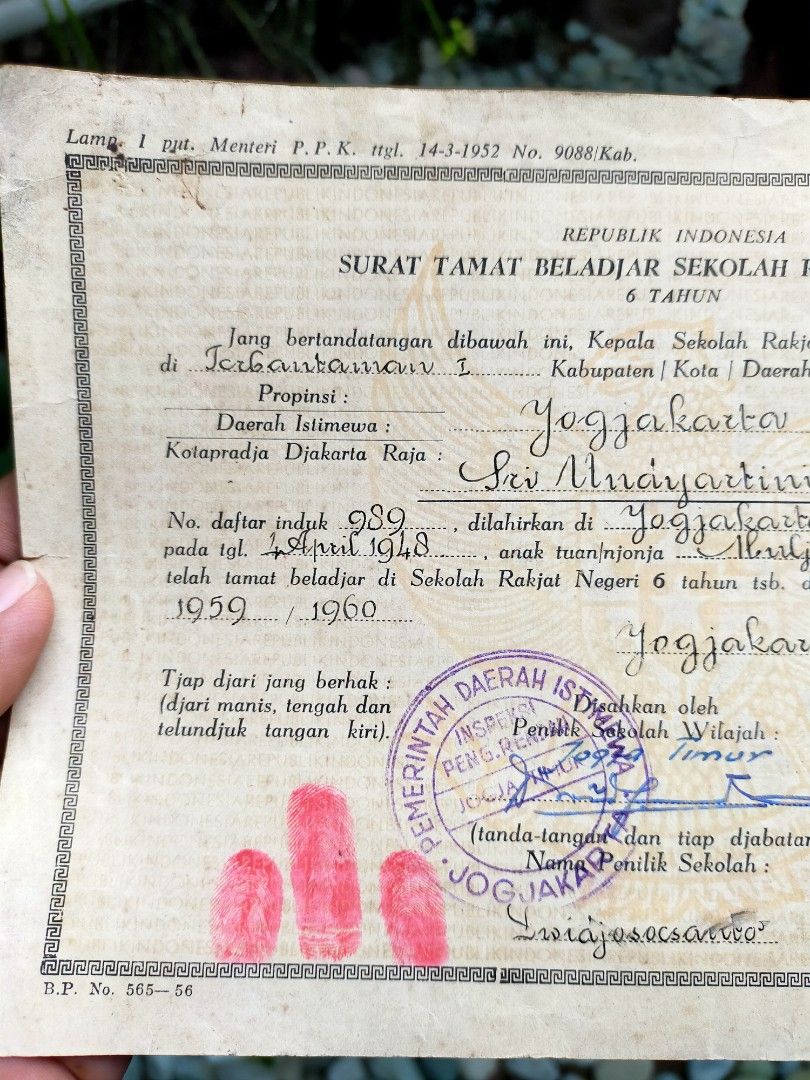 Lamp. I put. Menteri P. P. K. ttgl. 14-3-1952 No. 9088/Kab.
REPUBLIK INDONESIA
SURAT TAMAT BELADJAR SEKOLAH
6 TAHUN
Jang bertandatangan dibawah ini, Kepala Sekolah Rakj
di Terbantaman I Kabupaten / Kota / Daerah
Propinsi :
Daerah Istimewa : Yogjakarta
Kotapradja Djakarta Raja :
Sri Mudyartin
No. daftar induk 989, dilahirkan di Yogjakart
pada tgl. 4 April 1948, anak tuan/njonja Mulj
telah tamat beladjar di Sekolah Rakjat Negeri 6 tahun tsb.
1959 / 1960
Yogjakar
Tjap djari jang berhak :
(djari manis, tengah dan
telundjuk tangan kiri).
PEMERINTAH DAERAH ISTIMEWA
JOGJAKARTA
INSPEKSI
PENG. RENDAH
JOGJA TIMUR
Disahkan oleh
Penilik Sekolah Wilajah :
Jogja Timur
(tanda-tangan dan tiap djabatan
Nama Penilik Sekolah :
B.P. No. 565—56